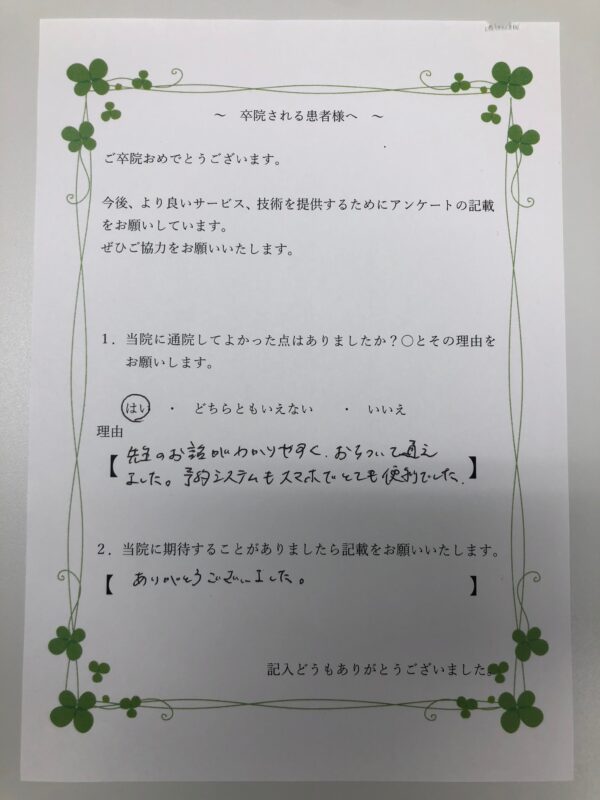 ～ 卒院される患者様へ ～
ご卒院おめでとうございます。
今後、より良いサービス、技術を提供するためにアンケートの記載
をお願いしています。
ぜひご協力をお願いいたします。
１．当院に通院してよかった点はありましたか？〇とその理由を
お願いします。
はい ・ どちらともいえない ・ いいえ
理由
【先生のお話がわかりやすく、おちついて通え
ました。予約システムもスマホでとても便利でした。】
２．当院に期待することがありましたら記載をお願いいたします。
【ありがとうございました。】
記入どうもありがとうございました。